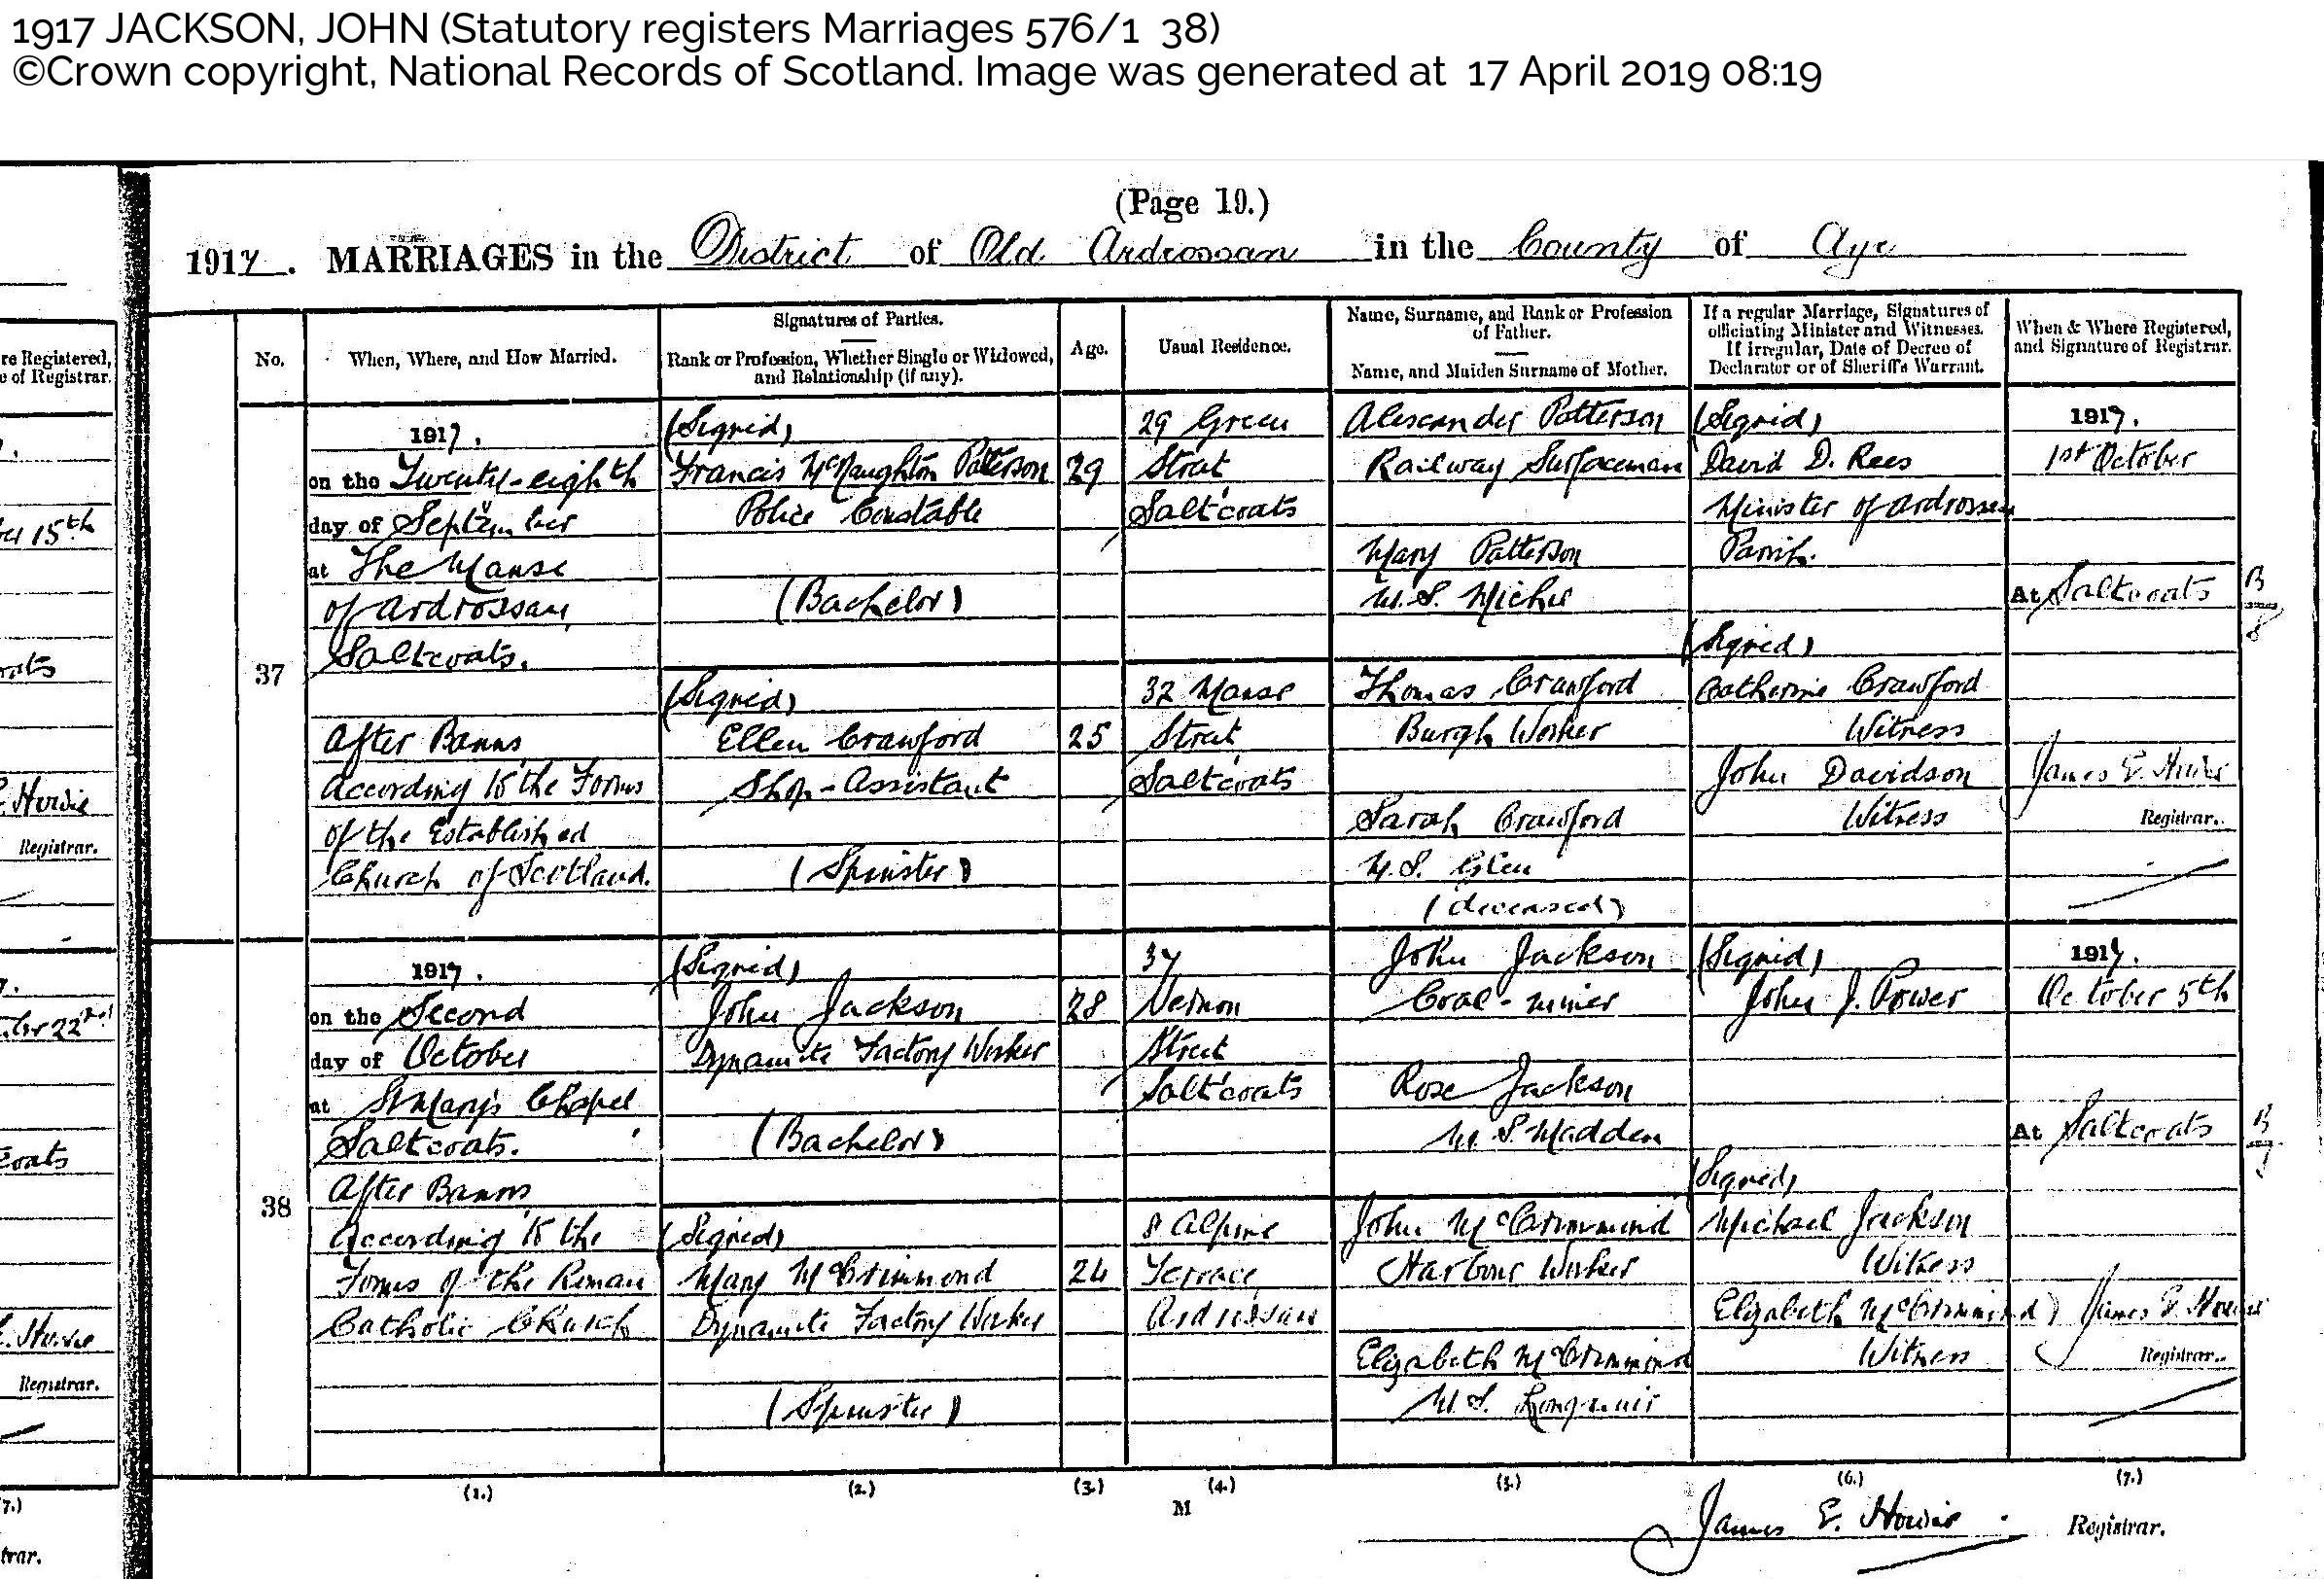 1917 JACKSON, JOHN (Statutory registers Marriages 576/1 38)
©Crown copyright, National Records of Scotland. Image was generated at 17 April 2019 08:19
(Page 19.)
1917. MARRIAGES in the District of Old Ardrossan in the County of Ayr
re Registered,
e of Registrar.
No.
When, Where, and How Married.
Signatures of Parties.
Rank or Profession, Whether Single or Widowed,
and Relationship (if any).
Age.
Usual Residence.
Name, Surname, and Rank or Profession
of Father.
Name, and Maiden Surname of Mother.
If a regular Marriage, Signatures of
officiating Minister and Witnesses.
If irregular, Date of Decree of
Declarator or of Sheriff's Warrant.
When & Where Registered,
and Signature of Registrar.
37
1917.
on the Twenty-eighth
day of September
at The Manse
of Ardrossan,
Saltcoats.
After Banns,
According to the Forms
of the Established
Church of Scotland.
(Signed)
Francis McNaughton Patterson
Police Constable
(Bachelor)
(Signed)
Ellen Crawford
Shop-Assistant
(Spinster)
29
25
29 Green
Street
Saltcoats
32 Manse
Street
Saltcoats
Alexander Patterson
Railway Surfaceman
Mary Patterson
M.S. Michie
Thomas Crawford
Burgh Worker
Sarah Crawford
M.S. Glen
(deceased)
(Signed)
David D. Rees
Minister of Ardrossan
Parish.
(Signed)
Catherine Crawford
Witness
John Davidson
Witness
1917.
1st October
At Saltcoats
James E. Howie
Registrar.
B
8
38
1917.
on the Second
day of October
at St Mary's Chapel
Saltcoats.
After Banns,
According to the
Forms of the Roman
Catholic Church
(Signed)
John Jackson
Dynamite Factory Worker
(Bachelor)
(Signed)
Mary McCrimmond
Dynamite Factory Worker
(Spinster)
28
24
37
Vernon
Street
Saltcoats
8 Alpine
Terrace
Ardrossan
John Jackson
Coal-miner
Rose Jackson
M.S. Madden
John McCrimmond
Harbour Worker
Elizabeth McCrimmond
M.S. Longmuir
(Signed)
John J. Power
(Signed)
Michael Jackson
Witness
Elizabeth McCrimmond
Witness
1917.
October 5th
At Saltcoats
James E. Howie
Registrar.
B
(1.) (2.) (3.) (4.) (5.) (6.) (7.)
M
James E. Howie Registrar.